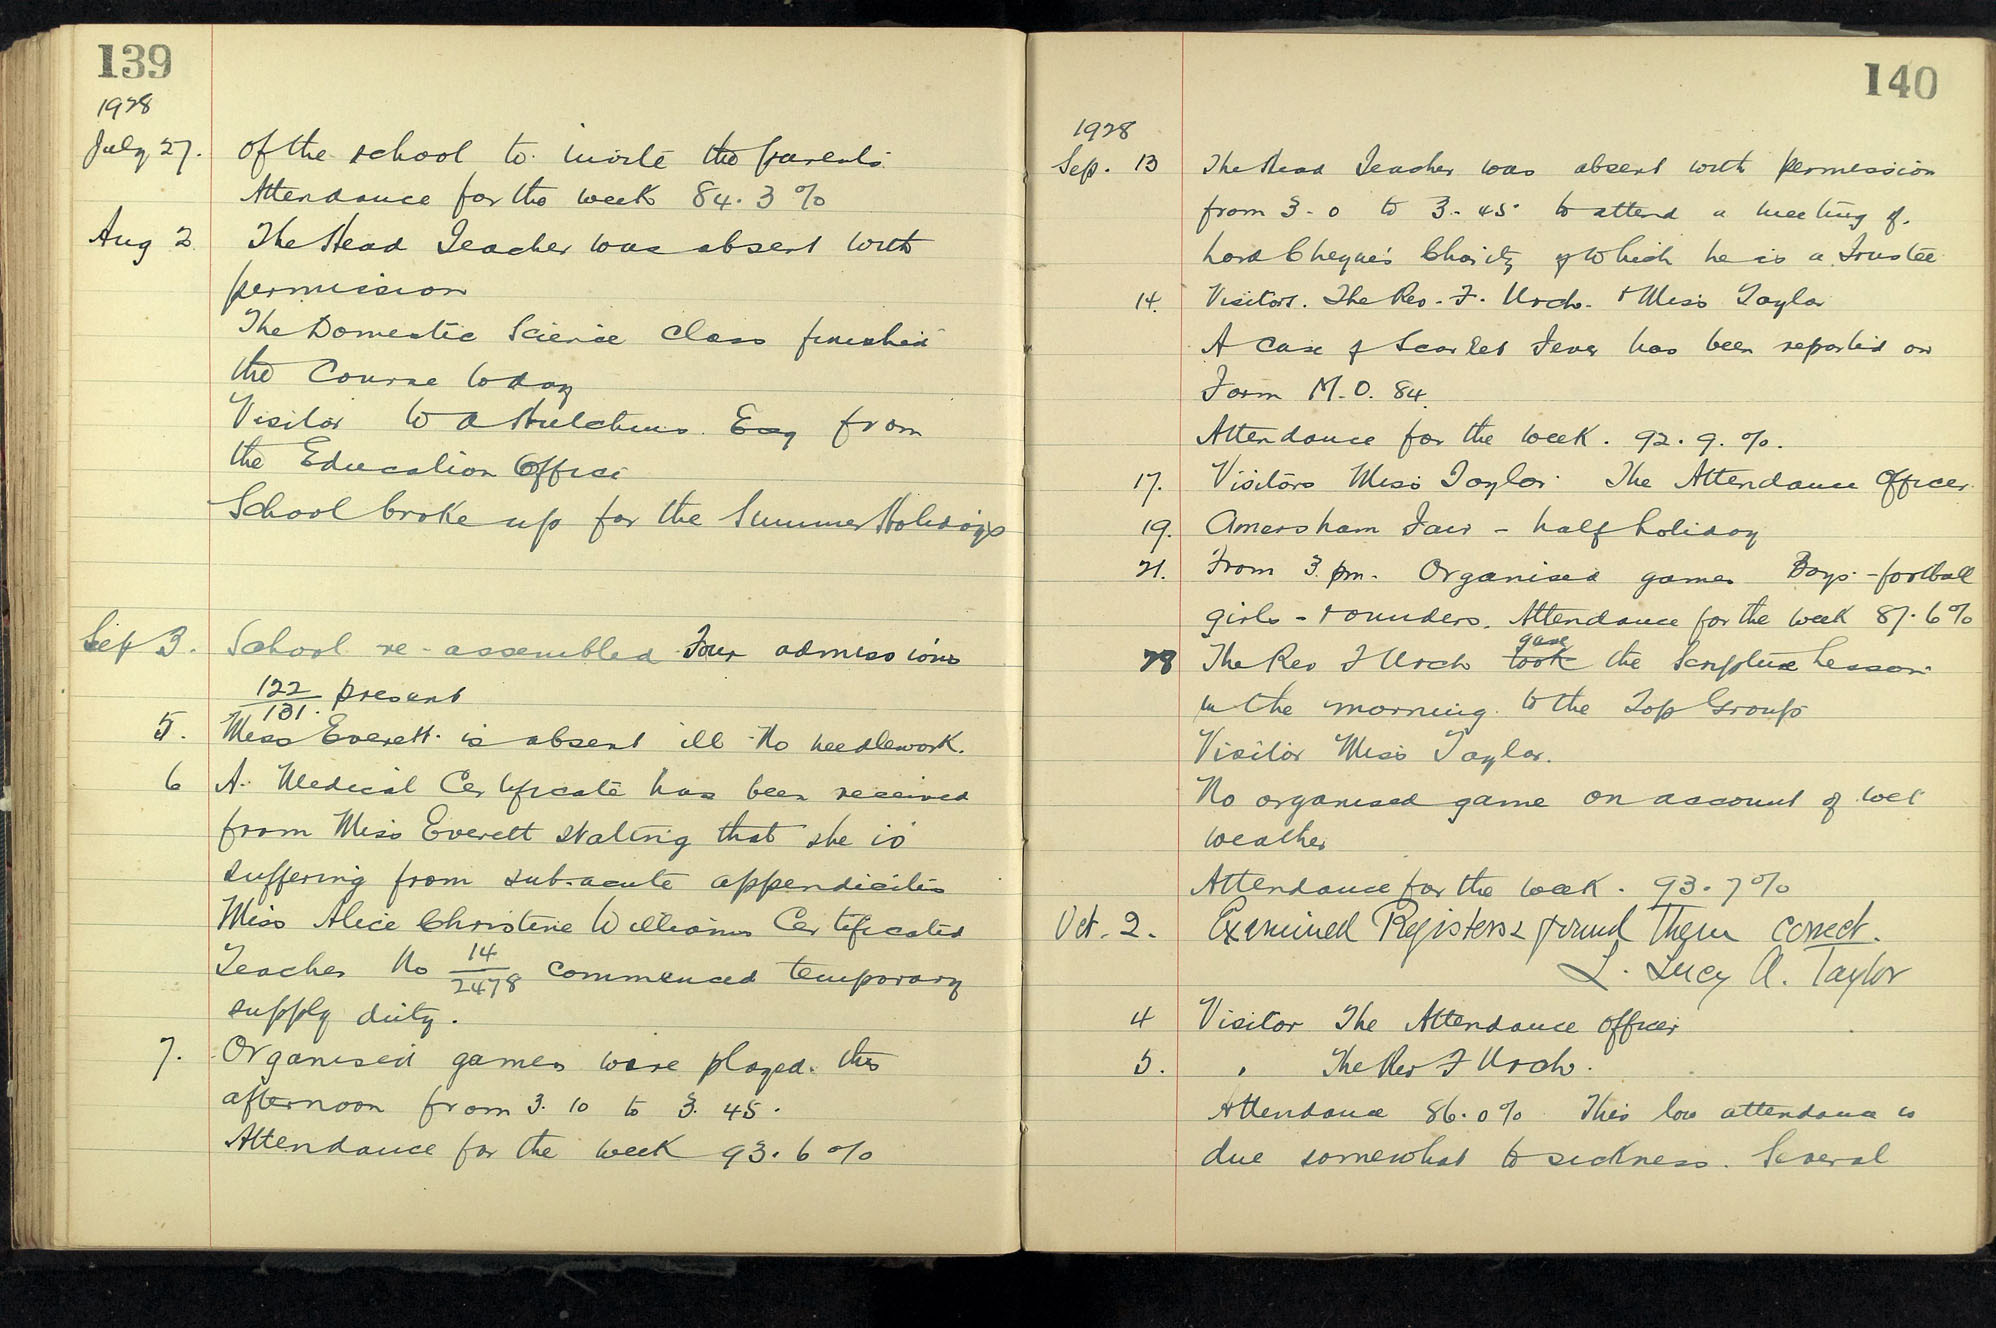 139
1928
July 27. of the school to invite the parents
Attendance for the week 84.3 %
Aug 2. The Head Teacher was absent with
permission
The Domestic Science Class finished
the Course today
Visitor W A Hutchins Esq from
the Education Office
School broke up for the Summer Holidays
Sep 3. School re-assembled Four admissions
122/131 present
5. Miss Everett is absent ill No needlework.
6 A Medical Certificate has been received
from Miss Everett stating that she is
suffering from sub-acute appendicitis
Miss Alice Christine Williams Certificated
Teacher No 14/2478 commenced temporary
supply duty.
7. Organised games were played this
afternoon from 3.10 to 3.45.
Attendance for the week 93.6 %
140
1928
Sep. 13 The Head Teacher was absent with permission
from 3-0 to 3-45 to attend a meeting of
Lord Cheyne's Charity of which he is a Trustee
14. Visitors. The Rev. F. Urch. & Miss Taylor
A case of Scarlet Fever has been reported on
Form M.O. 84.
Attendance for the week. 92.9.%.
17. Visitors Miss Taylor. The Attendance Officer.
19. Amersham Fair - half holiday
21. From 3 pm. Organised games Boys - football
girls - rounders. Attendance for the week 87.6%
28 The Rev F Urch took gave the Scripture Lesson
in the morning to the Top Groups
Visitor Miss Taylor.
No organised game on account of wet
weather
Attendance for the week. 93.7%
Oct. 2. Examined Registers & found them correct.
L. Lucy A. Taylor
4 Visitor The Attendance Officer
5. " The Rev F Urch.
Attendance 86.0% This low attendance is
due somewhat to sickness. Several